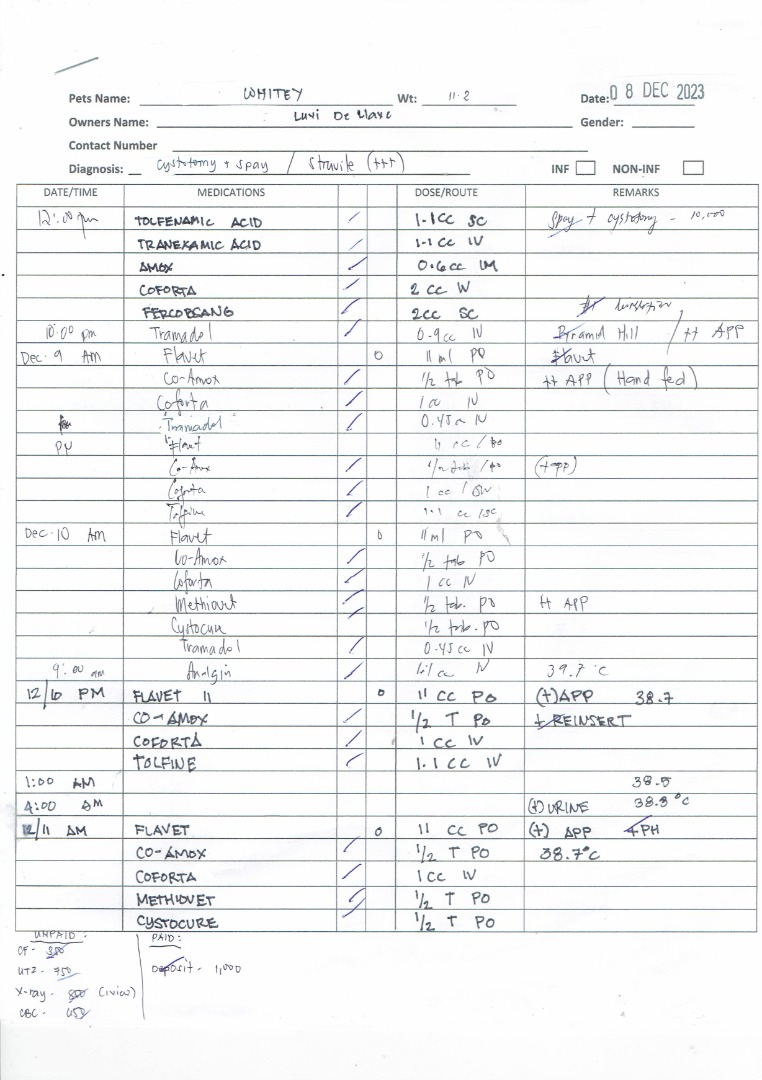 Pets Name: WHITEY Wt: 11.2 Date: 08 DEC 2023
Owners Name: Luvi De Llave Gender:
Contact Number
Diagnosis: Cystotomy + Spay / Struvite (+++) INF NON-INF
DATE/TIME MEDICATIONS DOSE/ROUTE REMARKS
12:00 pm TOLFENAMIC ACID 1.1cc SC Spay + cystotomy - 10,000
TRANEXAMIC ACID 1.1 cc IV
AMOX 0.6cc IM
COFORTA 2 cc IV
FERCOBSANG 2cc SC
10:00 pm Tramadol 0.9cc IV Pyramid Hill / ++ APP
Dec. 9 AM Flavet 0 11 ml PO Flavet
Co-Amox 1/2 tab PO ++ APP (Hand fed)
Coforta 1 cc IV
Tramadol 0.45 cc IV
PM Flavet 11 cc / PO
Co-Amox 1/2 tab / PO (+app)
Coforta 1 cc / IV
Tolfine 1.1 cc / SC
Dec. 10 AM Flavet 0 11 ml PO
Co-Amox 1/2 tab PO
Coforta 1 cc IV
Methiovet 1/2 tab. PO ++ APP
Cystocure 1/2 tab. PO
Tramadol 0.45 cc IV
9:00 am Analgin 1.1 cc IV 39.7°C
12/10 PM FLAVET 11 0 11 CC PO (+)APP 38.7
CO-AMOX 1/2 T PO + REINSERT
COFORTA 1 CC IV
TOLFINE 1.1 CC IV
1:00 AM 38.5
4:00 AM (+)URINE 38.3°C
12/11 AM FLAVET 0 11 CC PO (+) APP +PH
CO-AMOX 1/2 T PO 38.7°C
COFORTA 1 CC IV
METHIOVET 1/2 T PO
CYSTOCURE 1/2 T PO
UNPAID: PAID:
CF - 350
UTZ - 750 Deposit - 1,000
X-ray - 800 (1view)
CBC - 450